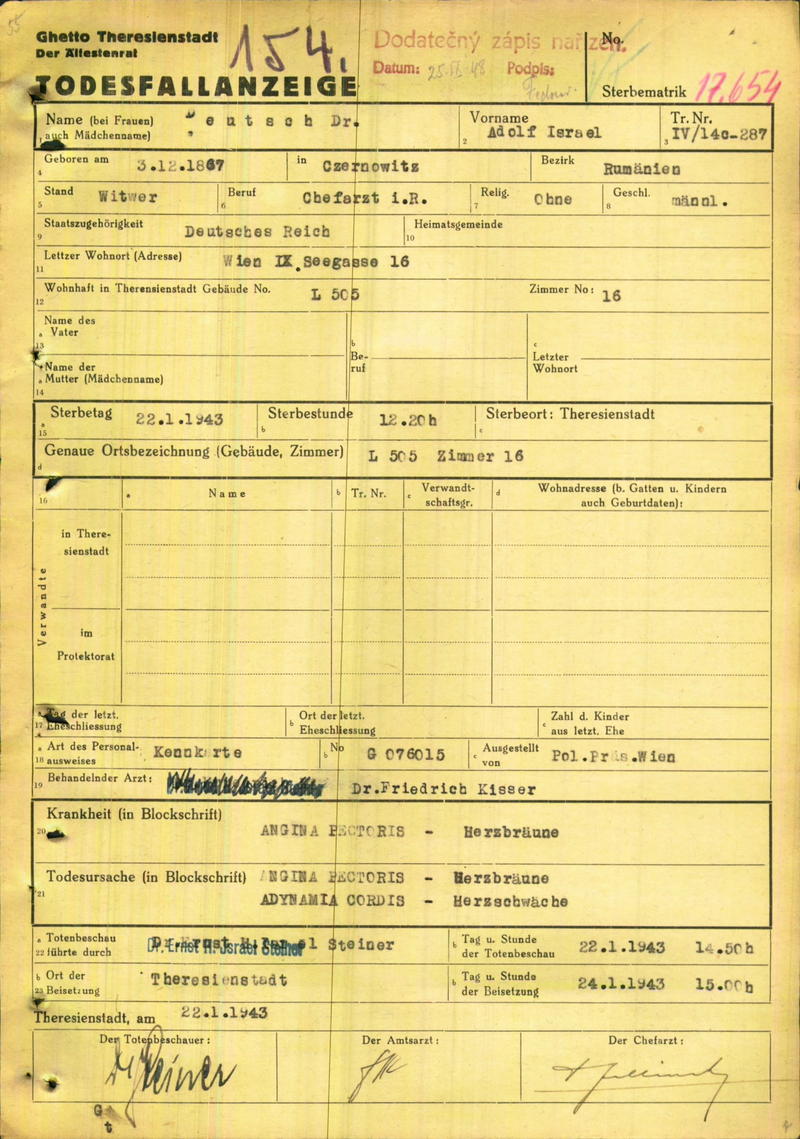 Ghetto Theresienstadt
Der Ältestenrat
154.
Dodatečný zápis nařízen.
No.
TODESFALLANZEIGE
Datum: 25. 48 Podpis:
Sterbematrik 17.654
Name (bei Frauen) eutsch Dr.
auch Mädchenname)
1
Vorname
Adolf Israel
2
Tr. Nr.
IV/14c-287
3
Geboren am 3.12.1867 in Czernowitz Bezirk Rumänien
4
Stand Witwer Beruf Chefarzt i.R. Relig. Ohne Geschl. männl.
5 6 7 8
Staatszugehörigkeit Deutsches Reich Heimatsgemeinde
9 10
Lettzer Wohnort (Adresse) Wien IX.Seegasse 16
11
Wohnhaft in Therensienstadt Gebäude No. L 505 Zimmer No: 16
12
Name des
a Vater
13
b
Be-
ruf
c
Letzter
Wohnort
Name der
a Mutter (Mädchenname)
14
Sterbetag 22.1.1943 Sterbestunde 12.20h Sterbeort: Theresienstadt
a b c
15
Genaue Ortsbezeichnung (Gebäude, Zimmer) L 505 Zimmer 16
d
16 a Name b Tr. Nr. c Verwandt-
schaftsgr.
d Wohnadresse (b. Gatten u. Kindern
auch Geburtdaten):
Verwandte
in There-
sienstadt
im
Protektorat
Tag der letzt.
17 Eheschliessung
Ort der letzt.
b Eheschliessung
Zahl d. Kinder
c aus letzt. Ehe
a Art des Personal-
18 ausweises
Kennkarte
b No G 076015
c Ausgestellt
von
Pol.Präs.Wien
Behandelnder Arzt: Dr.Friedrich Kisser
19
Krankheit (in Blockschrift)
20
ANGINA PECTORIS - Herzbräune
Todesursache (in Blockschrift) ANGINA PECTORIS - Herzbräune
21
ADYNAMIA CORDIS - Herzschwäche
a Totenbeschau
22 führte durch
Dr. Ernst Israel Steiner
b Tag u. Stunde
der Totenbeschau
22.1.1943 14.50h
b Ort der
23 Beisetzung
Theresienstadt
b Tag u. Stunde
der Beisetzung
24.1.1943 15.00h
Theresienstadt, am 22.1.1943
Der Totenbeschauer: Der Amtsarzt: Der Chefarzt:
Dr Steiner
G
t